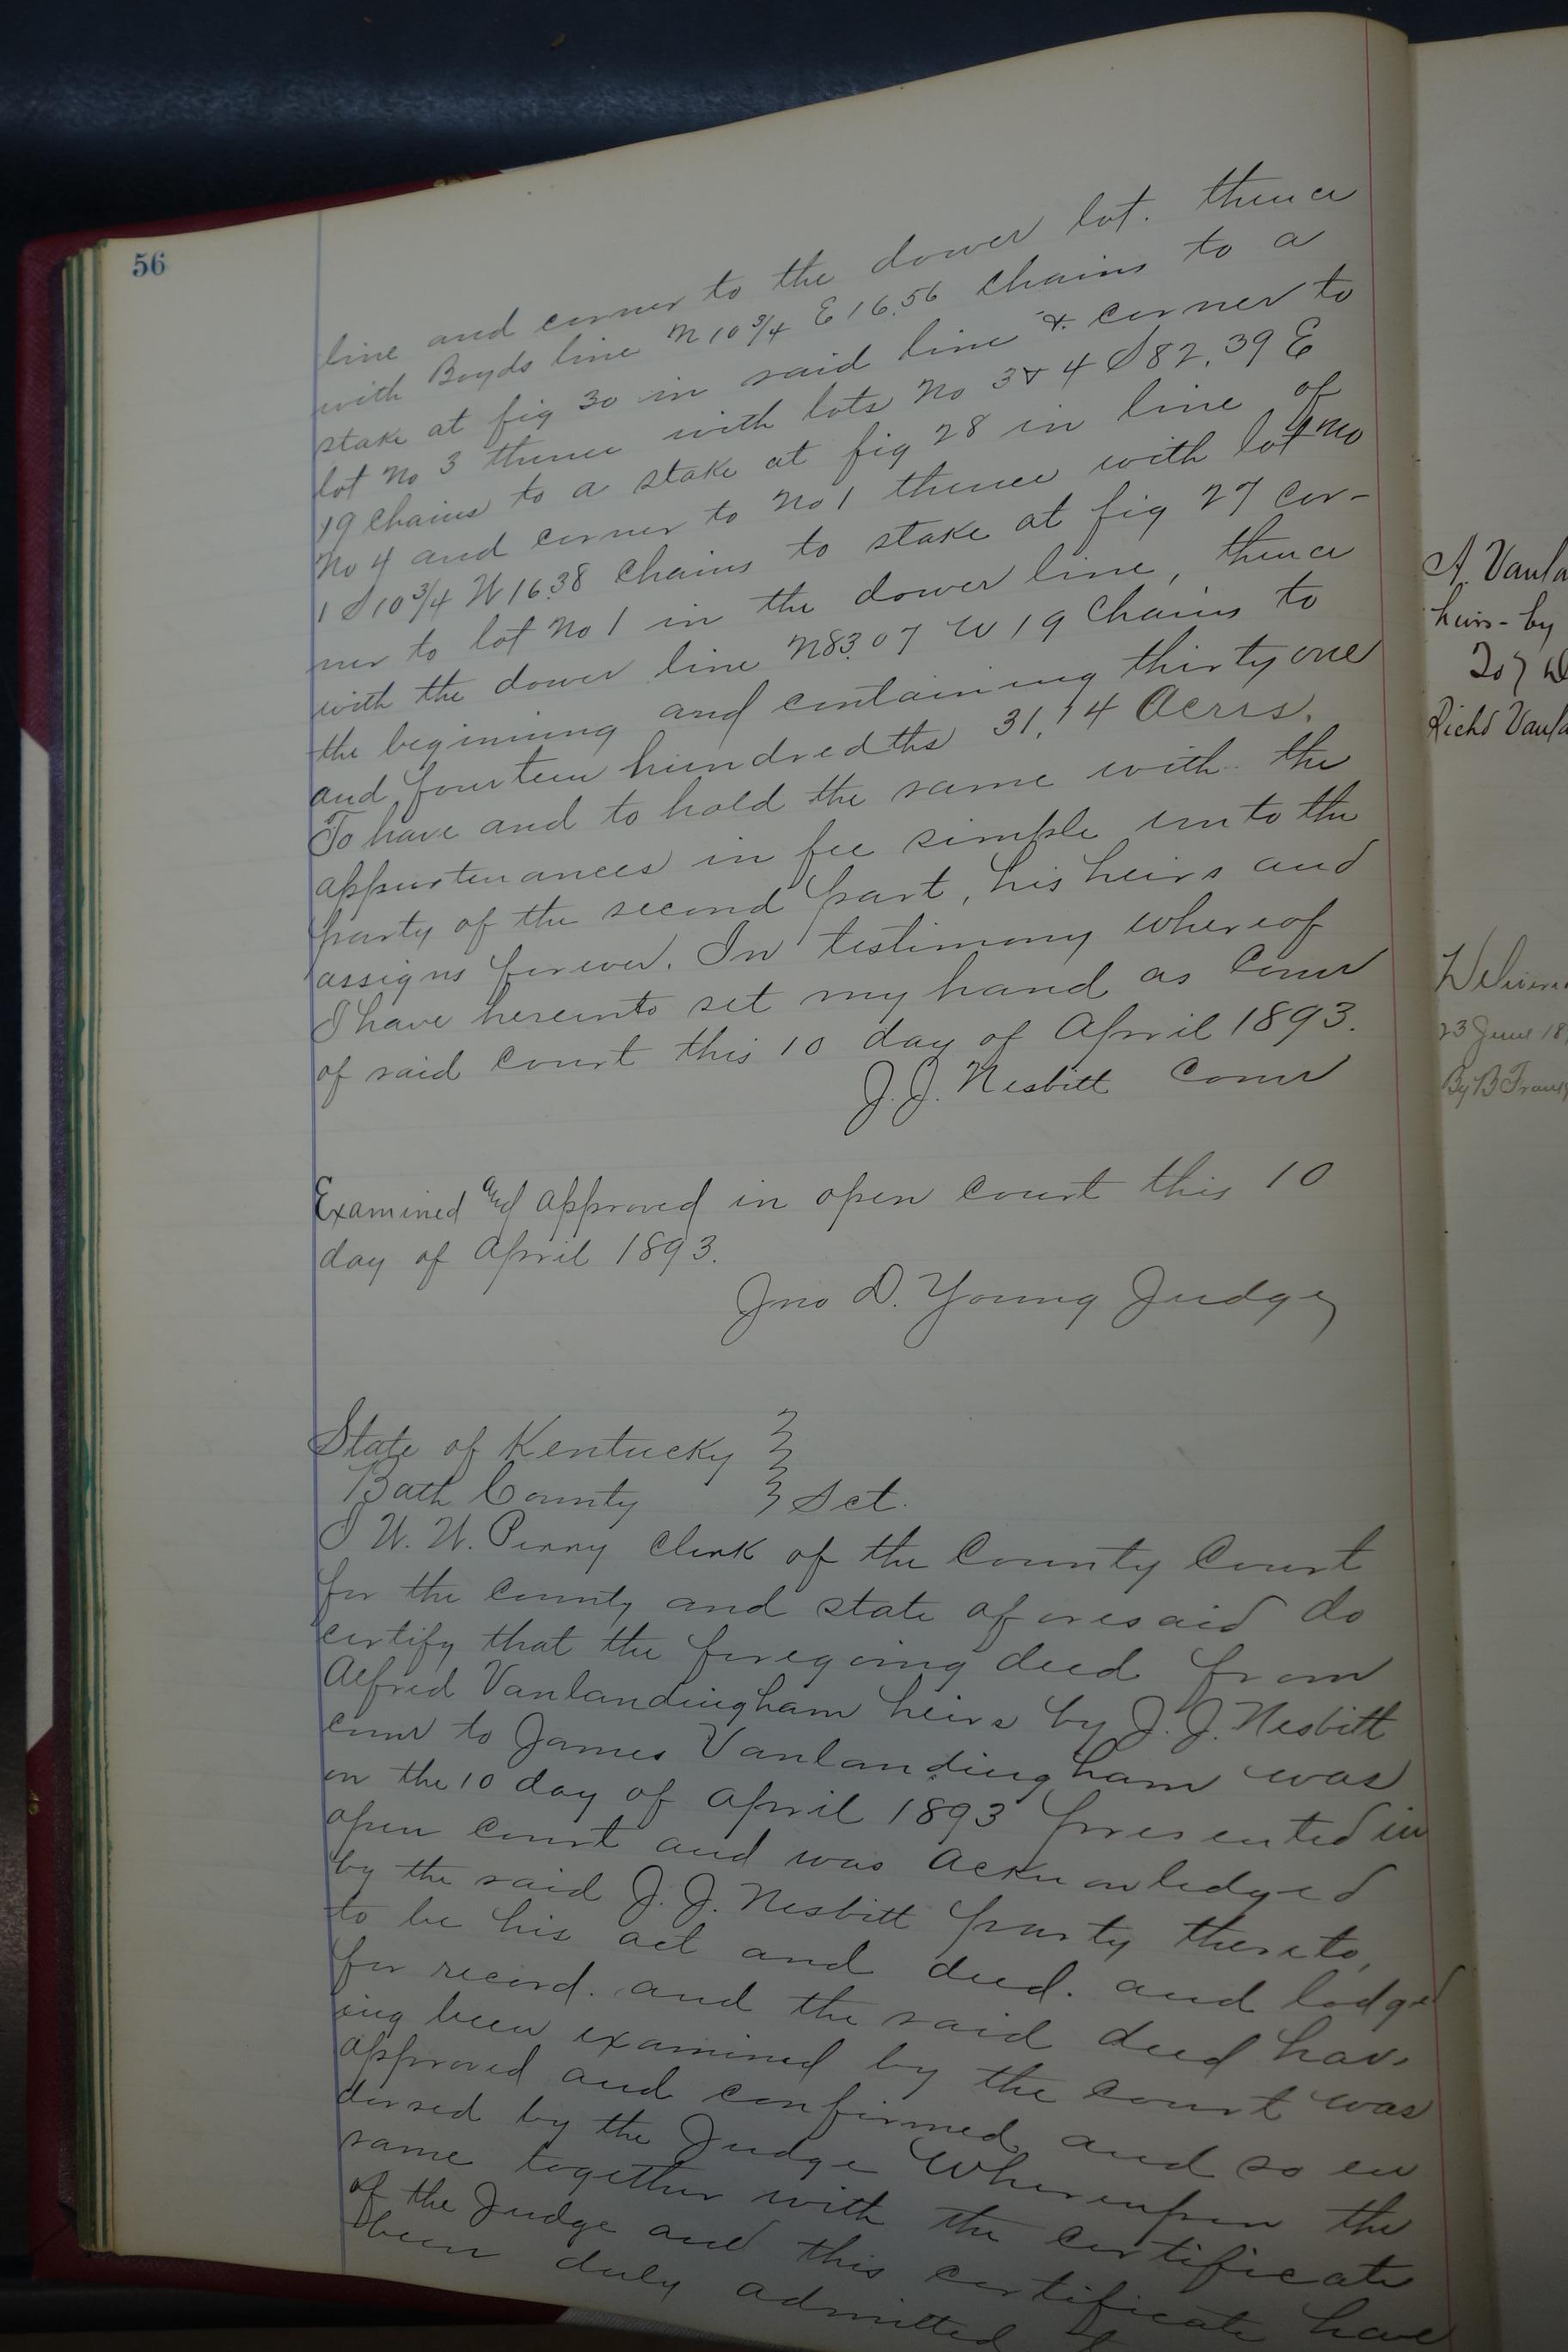 56
line and corner to the dower lot. thence
with Boyds line N 10 3/4 E 16.56 Chains to a
stake at fig 30 in said line & corner to
lot No 3 thence with lots No 3 & 4 S 82.39 E
19 Chains to a stake at fig 28 in line of
No 4 and corner to No 1 thence with lot No
1 S 10 3/4 W 16.38 Chains to stake at fig 27 cor-
ner to lot No 1 in the dower line, thence
with the dower line N 83.07 W 19 Chains to
the beginning and containing thirty one
and fourteen hundredths 31.14 Acres.
To have and to hold the same with the
appurtenances in fee simple unto the
party of the second part, his heirs and
assigns forever. In testimony whereof
I have hereunto set my hand as Comr
of said court this 10 day of April 1893.
J. J. Nesbitt Comr
Examined and approved in open Court this 10
day of April 1893.
Jno D. Young Judge
State of Kentucky
Bath County Sct.
I W. W. Perry Clerk of the County Court
for the county and state aforesaid do
certify that the foregoing deed from
Alfred Vanlandingham heirs by J. J. Nesbitt
comr to James Vanlandingham was
on the 10 day of April 1893 presented in
open court and was acknowledged
by the said J. J. Nesbitt party thereto,
to be his act and deed. and lodged
for record. and the said deed hav-
ing been examined by the court was
approved and confirmed and so en
dorsed by the Judge Whereupon the
same together with the certificate
of the Judge and this certificate have
been duly admitted
A. Vanla
heirs - by
To
Richd Vanla
23 June 18
By B